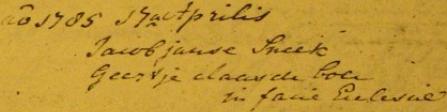 aõ 1785 17 Aprilis
Jacob Janse Sneek
Geertje Claas de boer
in facie Ecclesiae